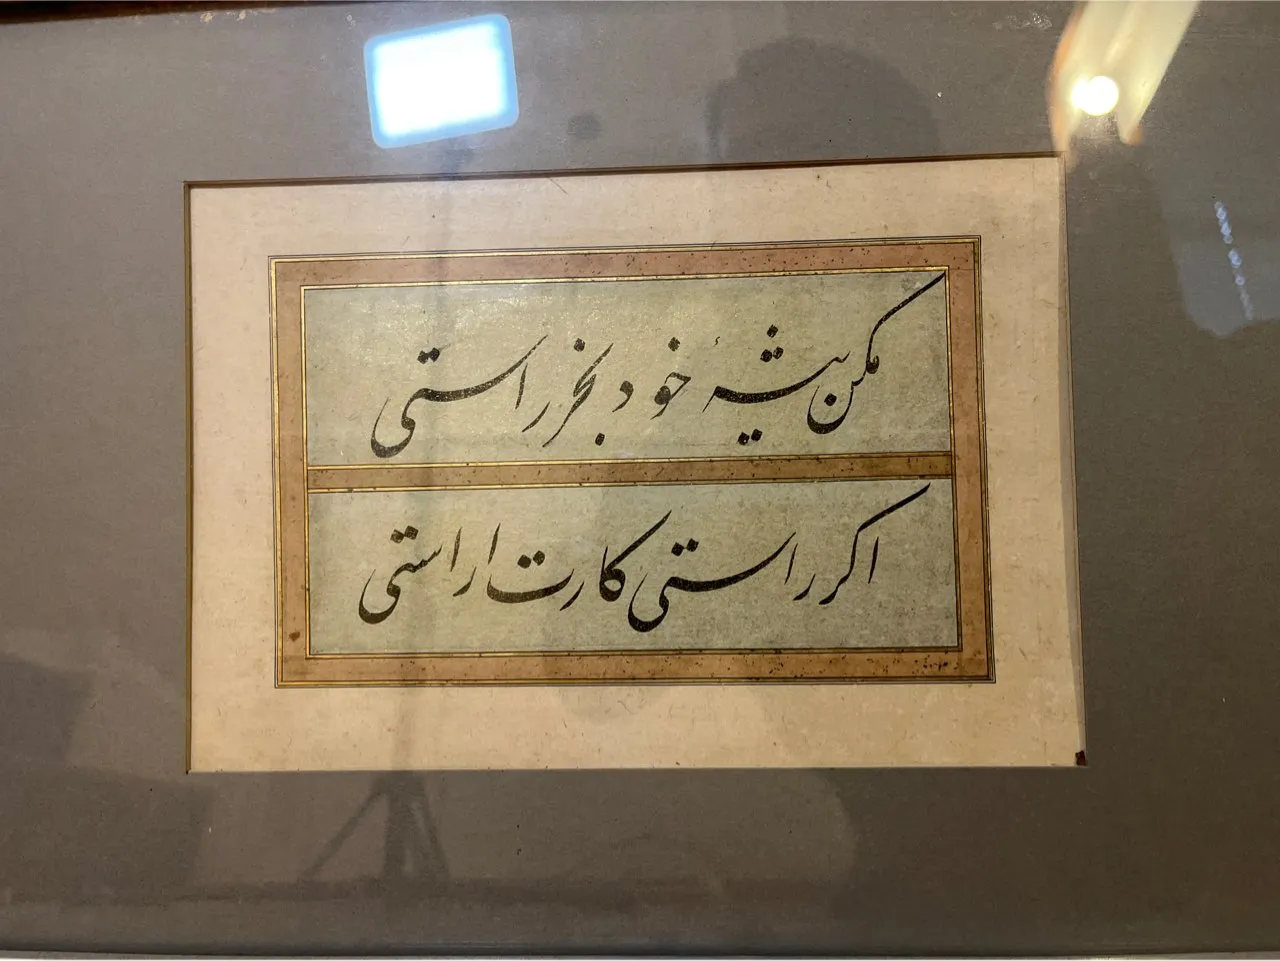 مکن پیشهٔ خود بخر راستی
اکر راستی کارت اراستی